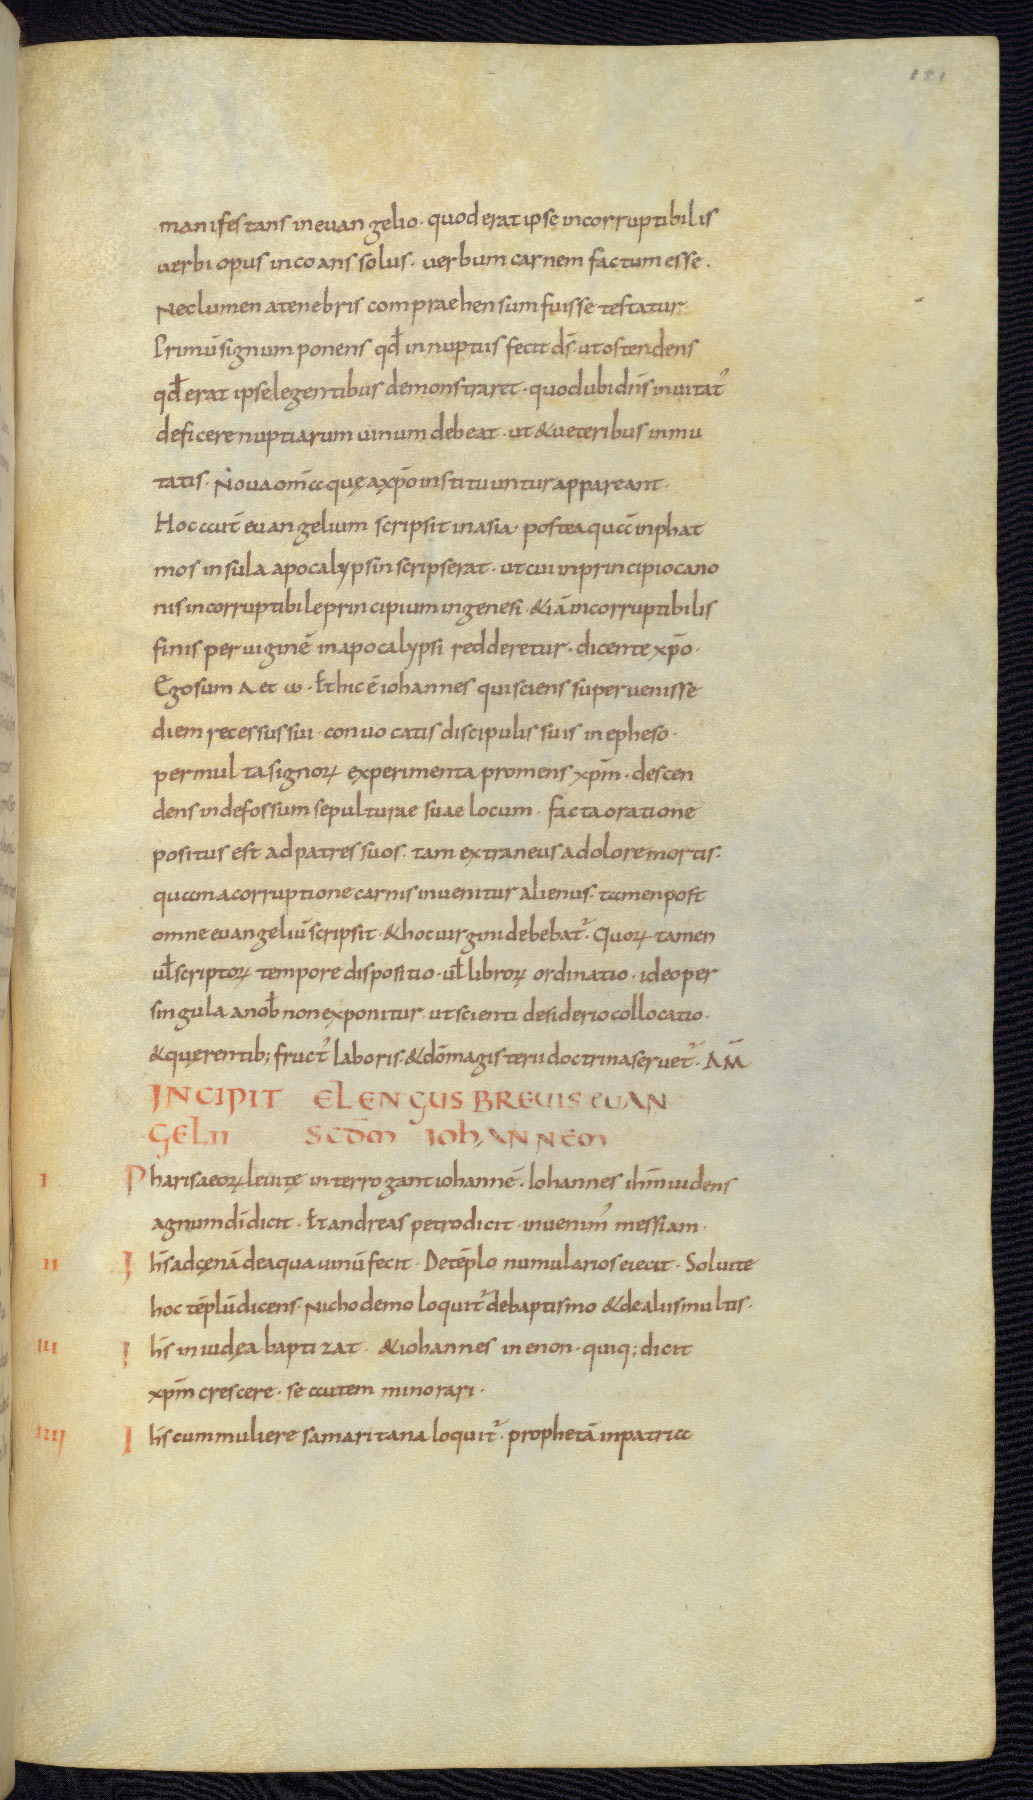 121
manifestans in euangelio · quod erat ipse incorruptibilis
verbi opus incoans solus · verbum carnem factum esse ·
Nec lumen a tenebris compraehensum fuisse testatur
Primū signum ponens qđ in nuptiis fecit ds̄ · ut ostendens
qđ erat ipse legentibus demonstraret · quod ubi dn̄s inuitat᾽
deficere nuptiarum uinum debeat · ut & ueteribus inmu
tatis · Noua om̄a quę a xp̄o instituuntur appareant ·
Hoc aut̄ euangelium scripsit in asia · postea quā in phat
mos insula apocalypsin scripserat · ut cui in principio cano
nis incorruptibile principium in genesi · & iā incorruptibilis
finis per uiginē in apocalypsi redderetur · dicente xp̄o ·
Ego sum A et ω · Et hic ē iohannes qui sciens superuenisse
diem recessus sui · conuocatis discipulis suis in epheso ·
per multa signoꝝ experimenta promens xp̄m · descen
dens in defossum sepulturae suae locum · facta oratione
positus est ad patres suos · tam extraneus a dolore mortis ·
quam a corruptione carnis inuenitur alienus · tamen post
omne euangeliū scripsit · & hoc uirgini debebat᾽ · Quoꝝ tamen
uł scriptoꝝ tempore dispositio · uł libroꝝ ordinatio · ideo per
singula a nob̄ non exponitur ut scienti desiderio collocatio ·
& quęrentib; fruct᾽ laboris · & dō magisterii doctrina seruet᾽ · AM̄
INCIPIT ELENGUS BREUIS EUAN
GELII SCDM̄ IOHANNEM
I Pharisaeoꝝ leuitę interrogant iohannē · Iohannes ih̄m uidens
agnum dī dicit · Et andreas petro dicit · inuenim᾽ messiam ·
II Ih̄s ad cęnā de aqua uinū fecit · De tēplo numularios eiecit · Soluite
hoc tēplū dicens · Nichodemo loquit᾽ de baptismo & de aliis multis ·
III Ih̄s in iudęa baptizat · & iohannes in enon · quiq; dicit
xp̄m crescere · se autem minorari ·
IIII Ih̄s cum muliere samaritana loquit᾽ · prophetā in patria